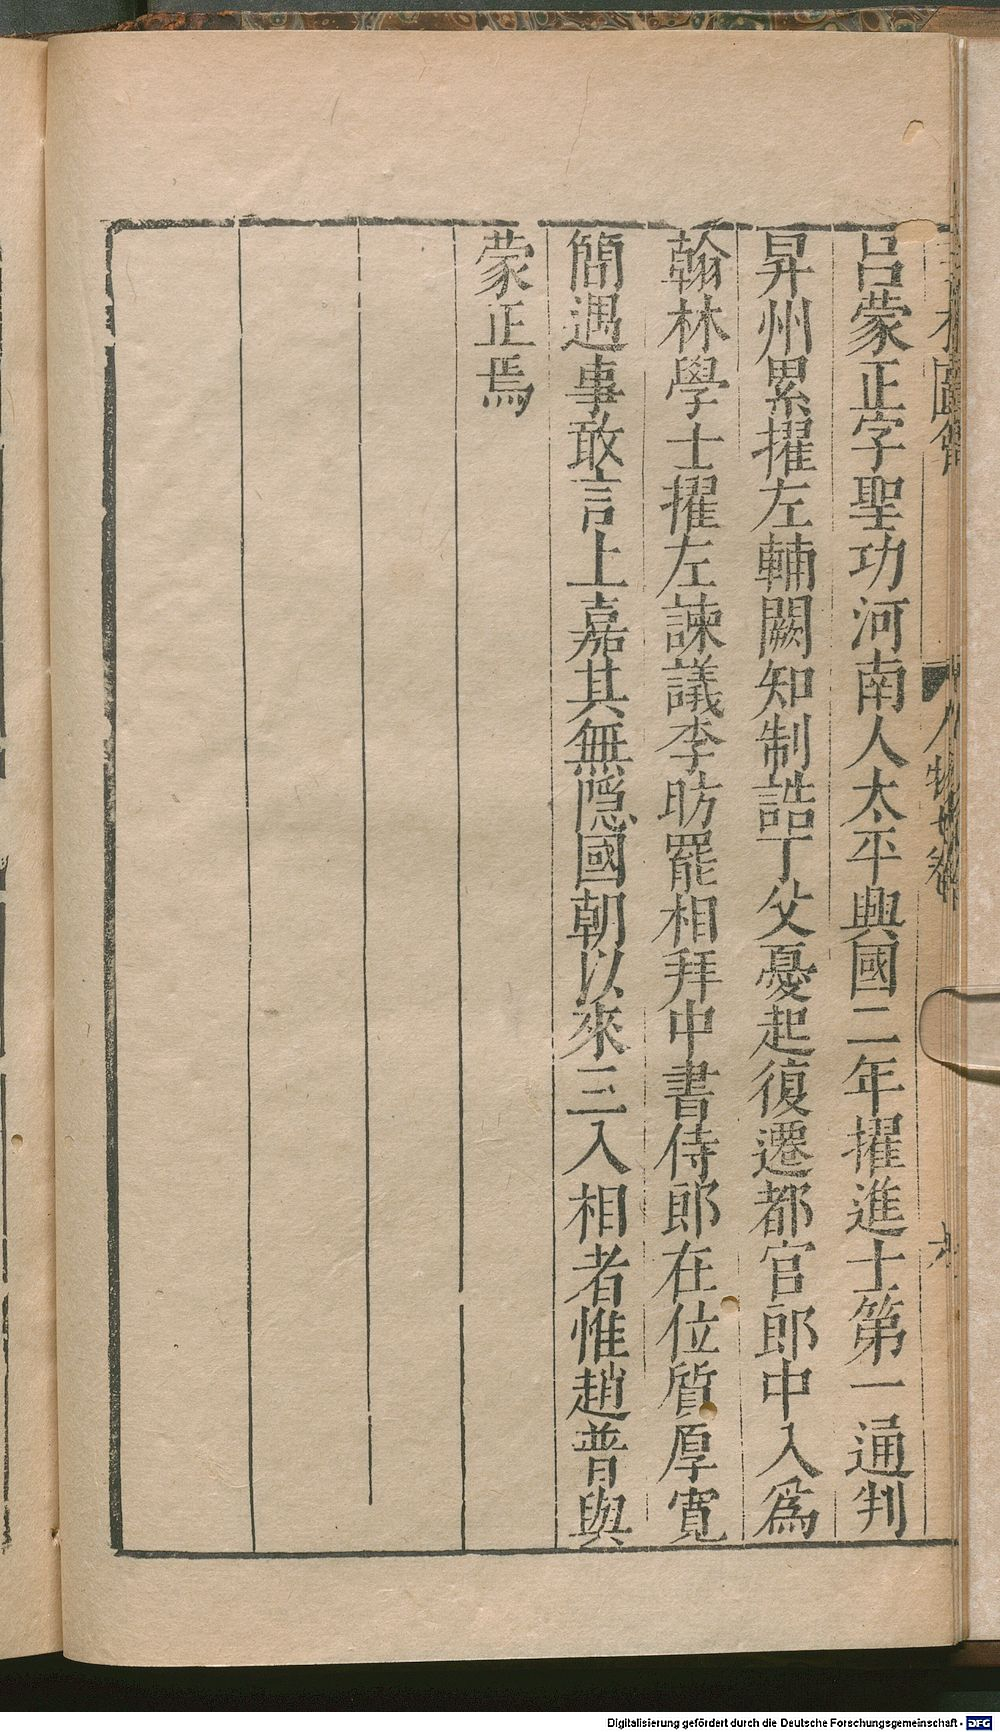 呂蒙正字聖功河南人太平興國二年擢進士第一通判
昇州累擢左輔闕知制誥丁父憂起復遷都官郎中入爲
翰林學士擢左諫議李昉罷相拜中書侍郎在位質厚寬
簡遇事敢言上嘉其無隱國朝以來三入相者惟趙普與
蒙正焉
人物
Digitalisierung gefördert durch die Deutsche Forschungsgemeinschaft - DFG